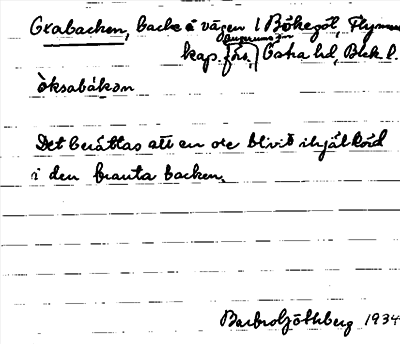 Oxabacken, backe å vägen i Bökegöl, Flymens
kap. förs. Östra hd, Blek. l.
òksabákən
Det berättas att en oxe blivit ihjälkörd
i den branta backen.
Barbro Göthberg 1934